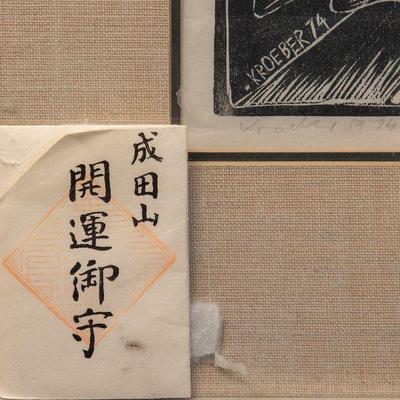 KROEBER 74
Kroeber 1974
成田山
開運御守